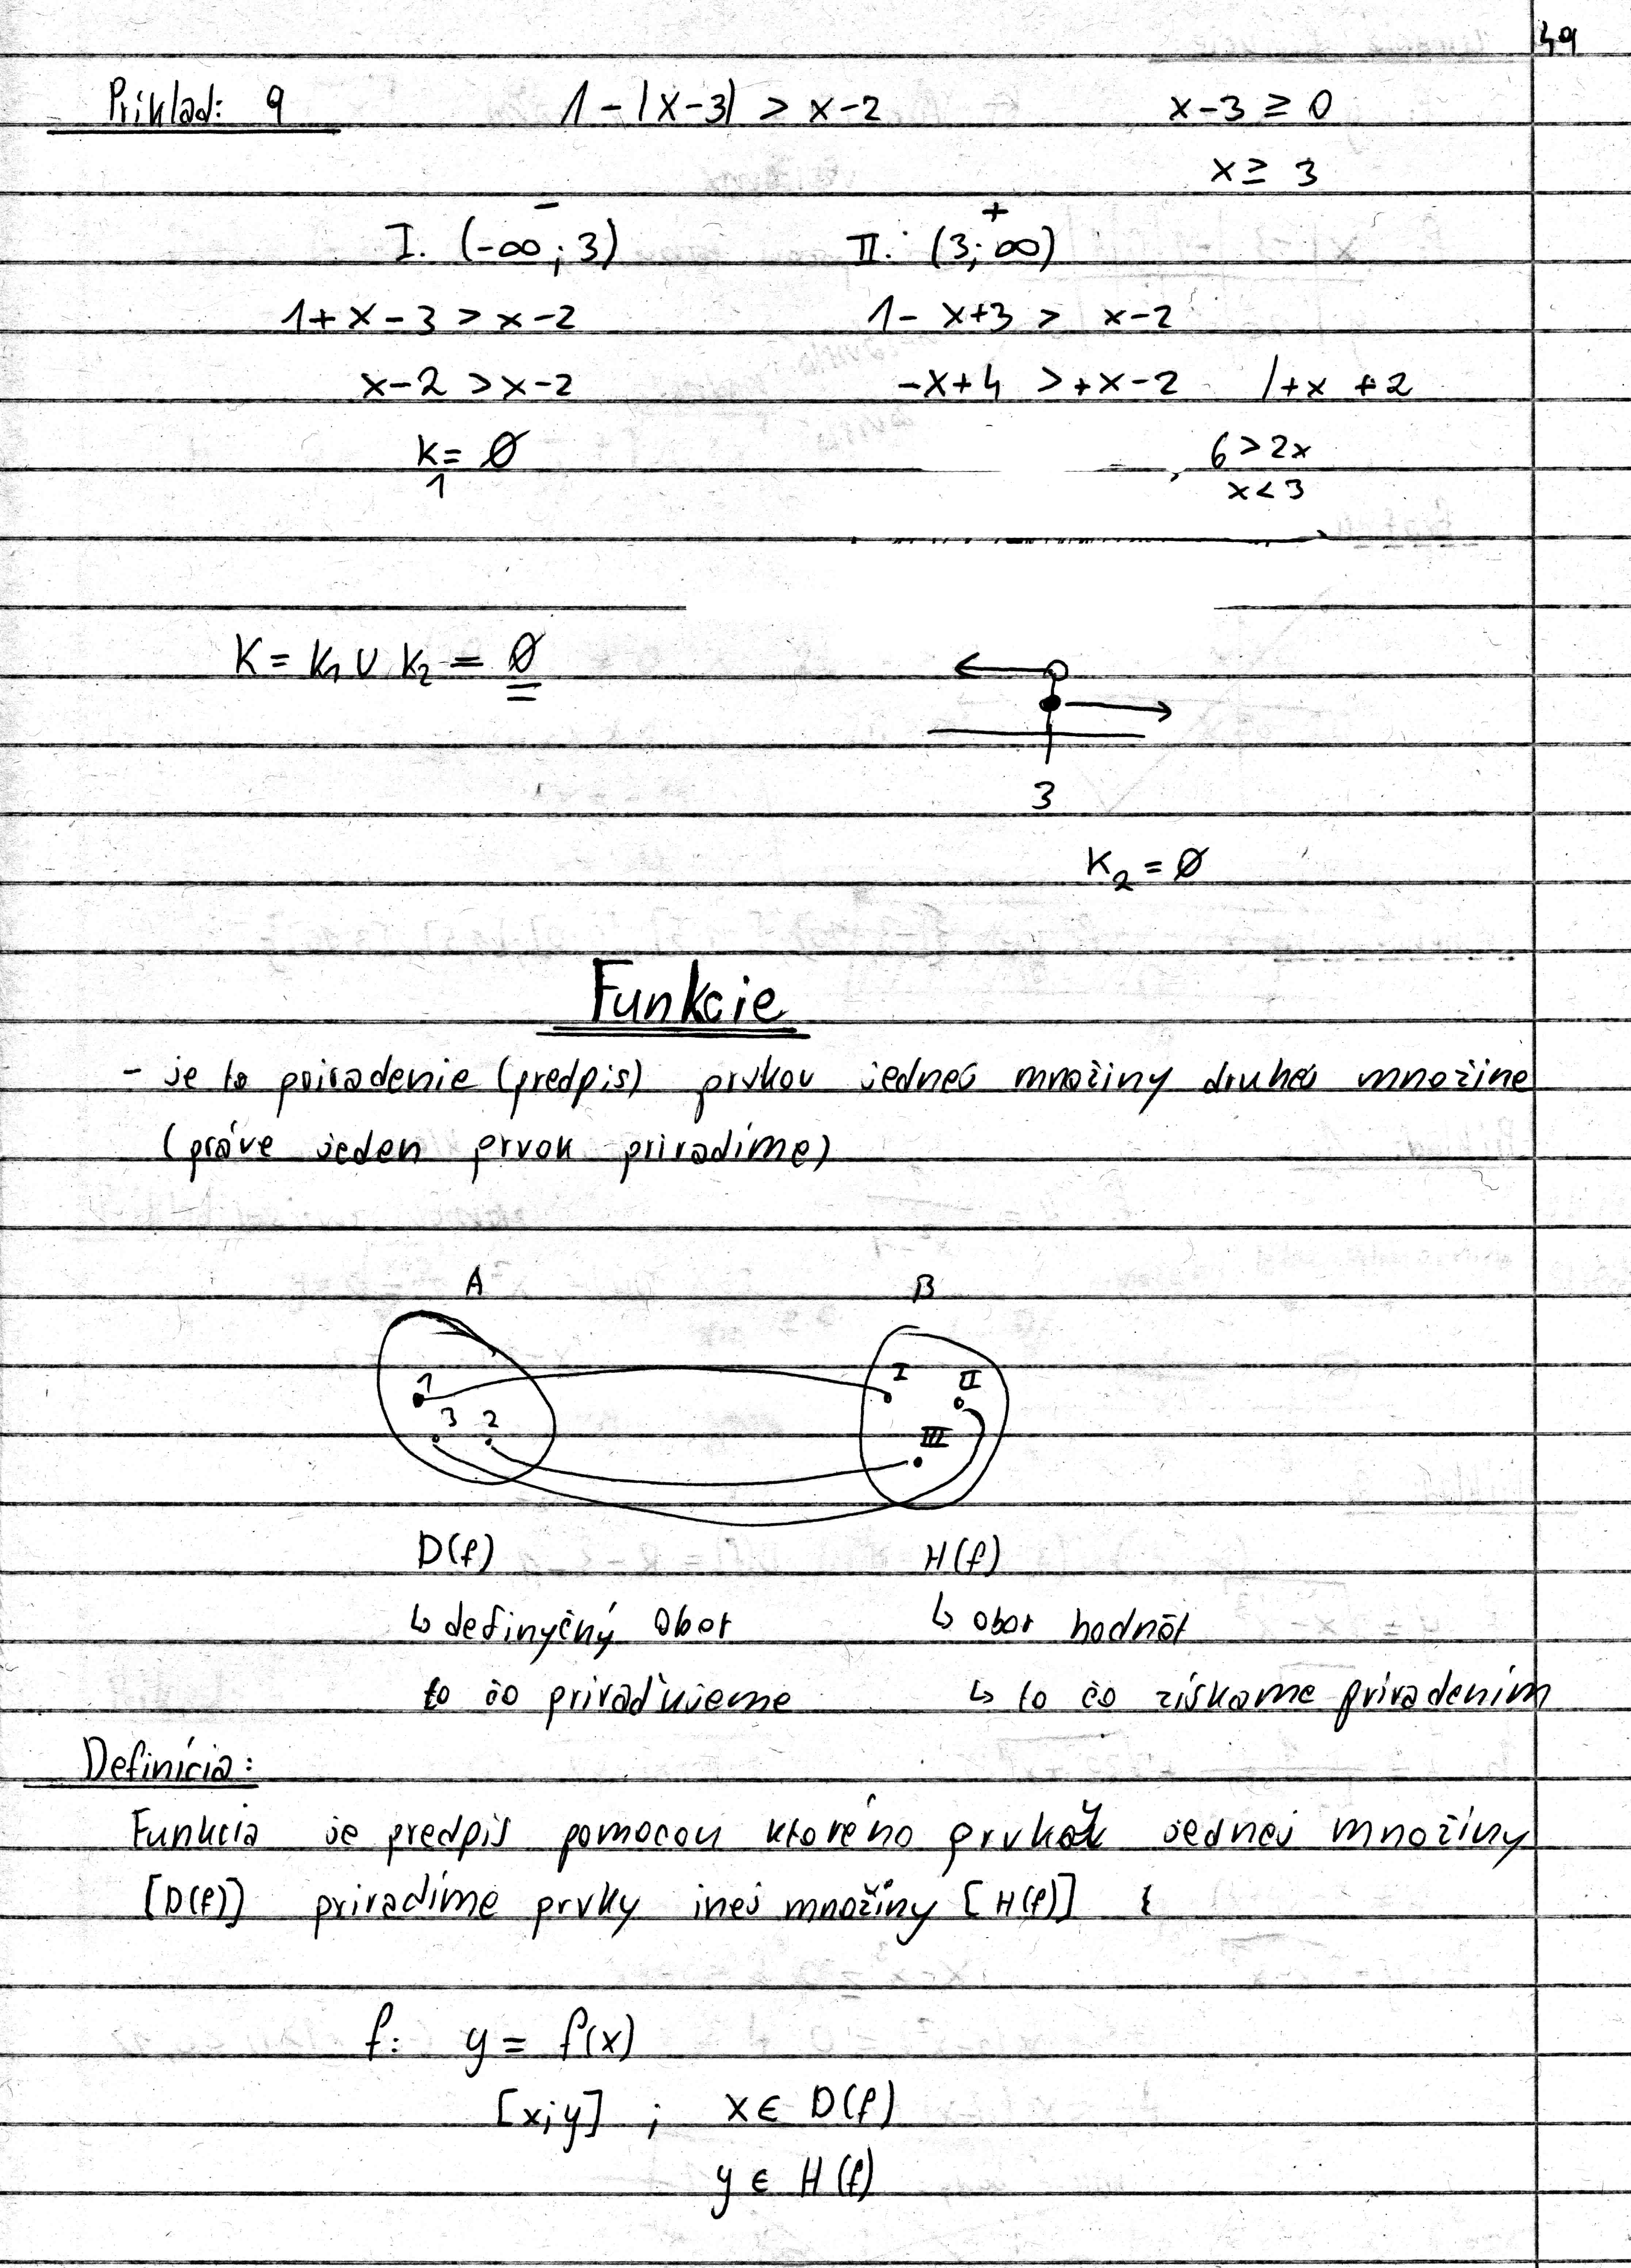 49
Príklad: 9 1-|x-3| > x-2 x-3 ≥ 0
x ≥ 3
- +
I. (-∞; 3) II. (3; ∞)
1+x-3 > x-2 1-x+3 > x-2
x-2 > x-2 -x+4 > +x-2 /+x +2
K₁ = ∅ 6 > 2x
x < 3
K = K₁ ∪ K₂ = ∅
3
K₂ = ∅
Funkcie
- je to priradenie (predpis) prvkov jednej množiny druhej množine
(práve jeden prvok priradíme)
A B
1 I II
3 2 III
D(f) H(f)
↳ definyčný obor ↳ obor hodnôt
to čo priraďujeme ↳ to čo získame priradením
Definícia:
Funkcia je predpis pomocou ktorého jednej množiny
[D(f)] priradíme prvky inej množiny [H(f)]
f: y = f(x)
[x;y] ; x ∈ D(f)
y ∈ H(f)